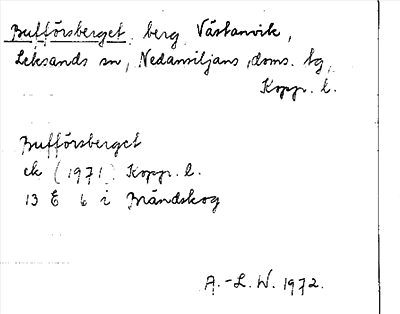 Buffórsberget, berg, Västanvik,
Leksands sn, Nedansiljans doms. tg,
Kopp. l.
Buffórsberget
ek (1971) Kopp. l.
13 E 6 i Brändskog
A.-L. W. 1972.